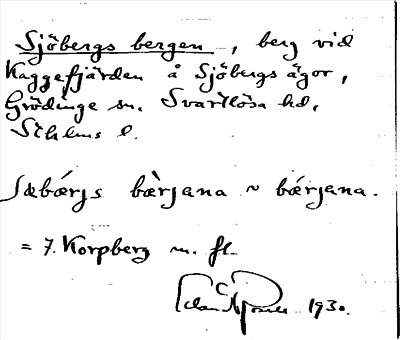 Sjöbergs bergen, berg vid
Kaggefjärden å Sjöbergs ägor,
Grödinge sn. Svartlösa hd,
Sthlms l.
ʃæbárjs bær̀jana ~ bǽrjana.
= 7. Korpberg m. fl.
1930.